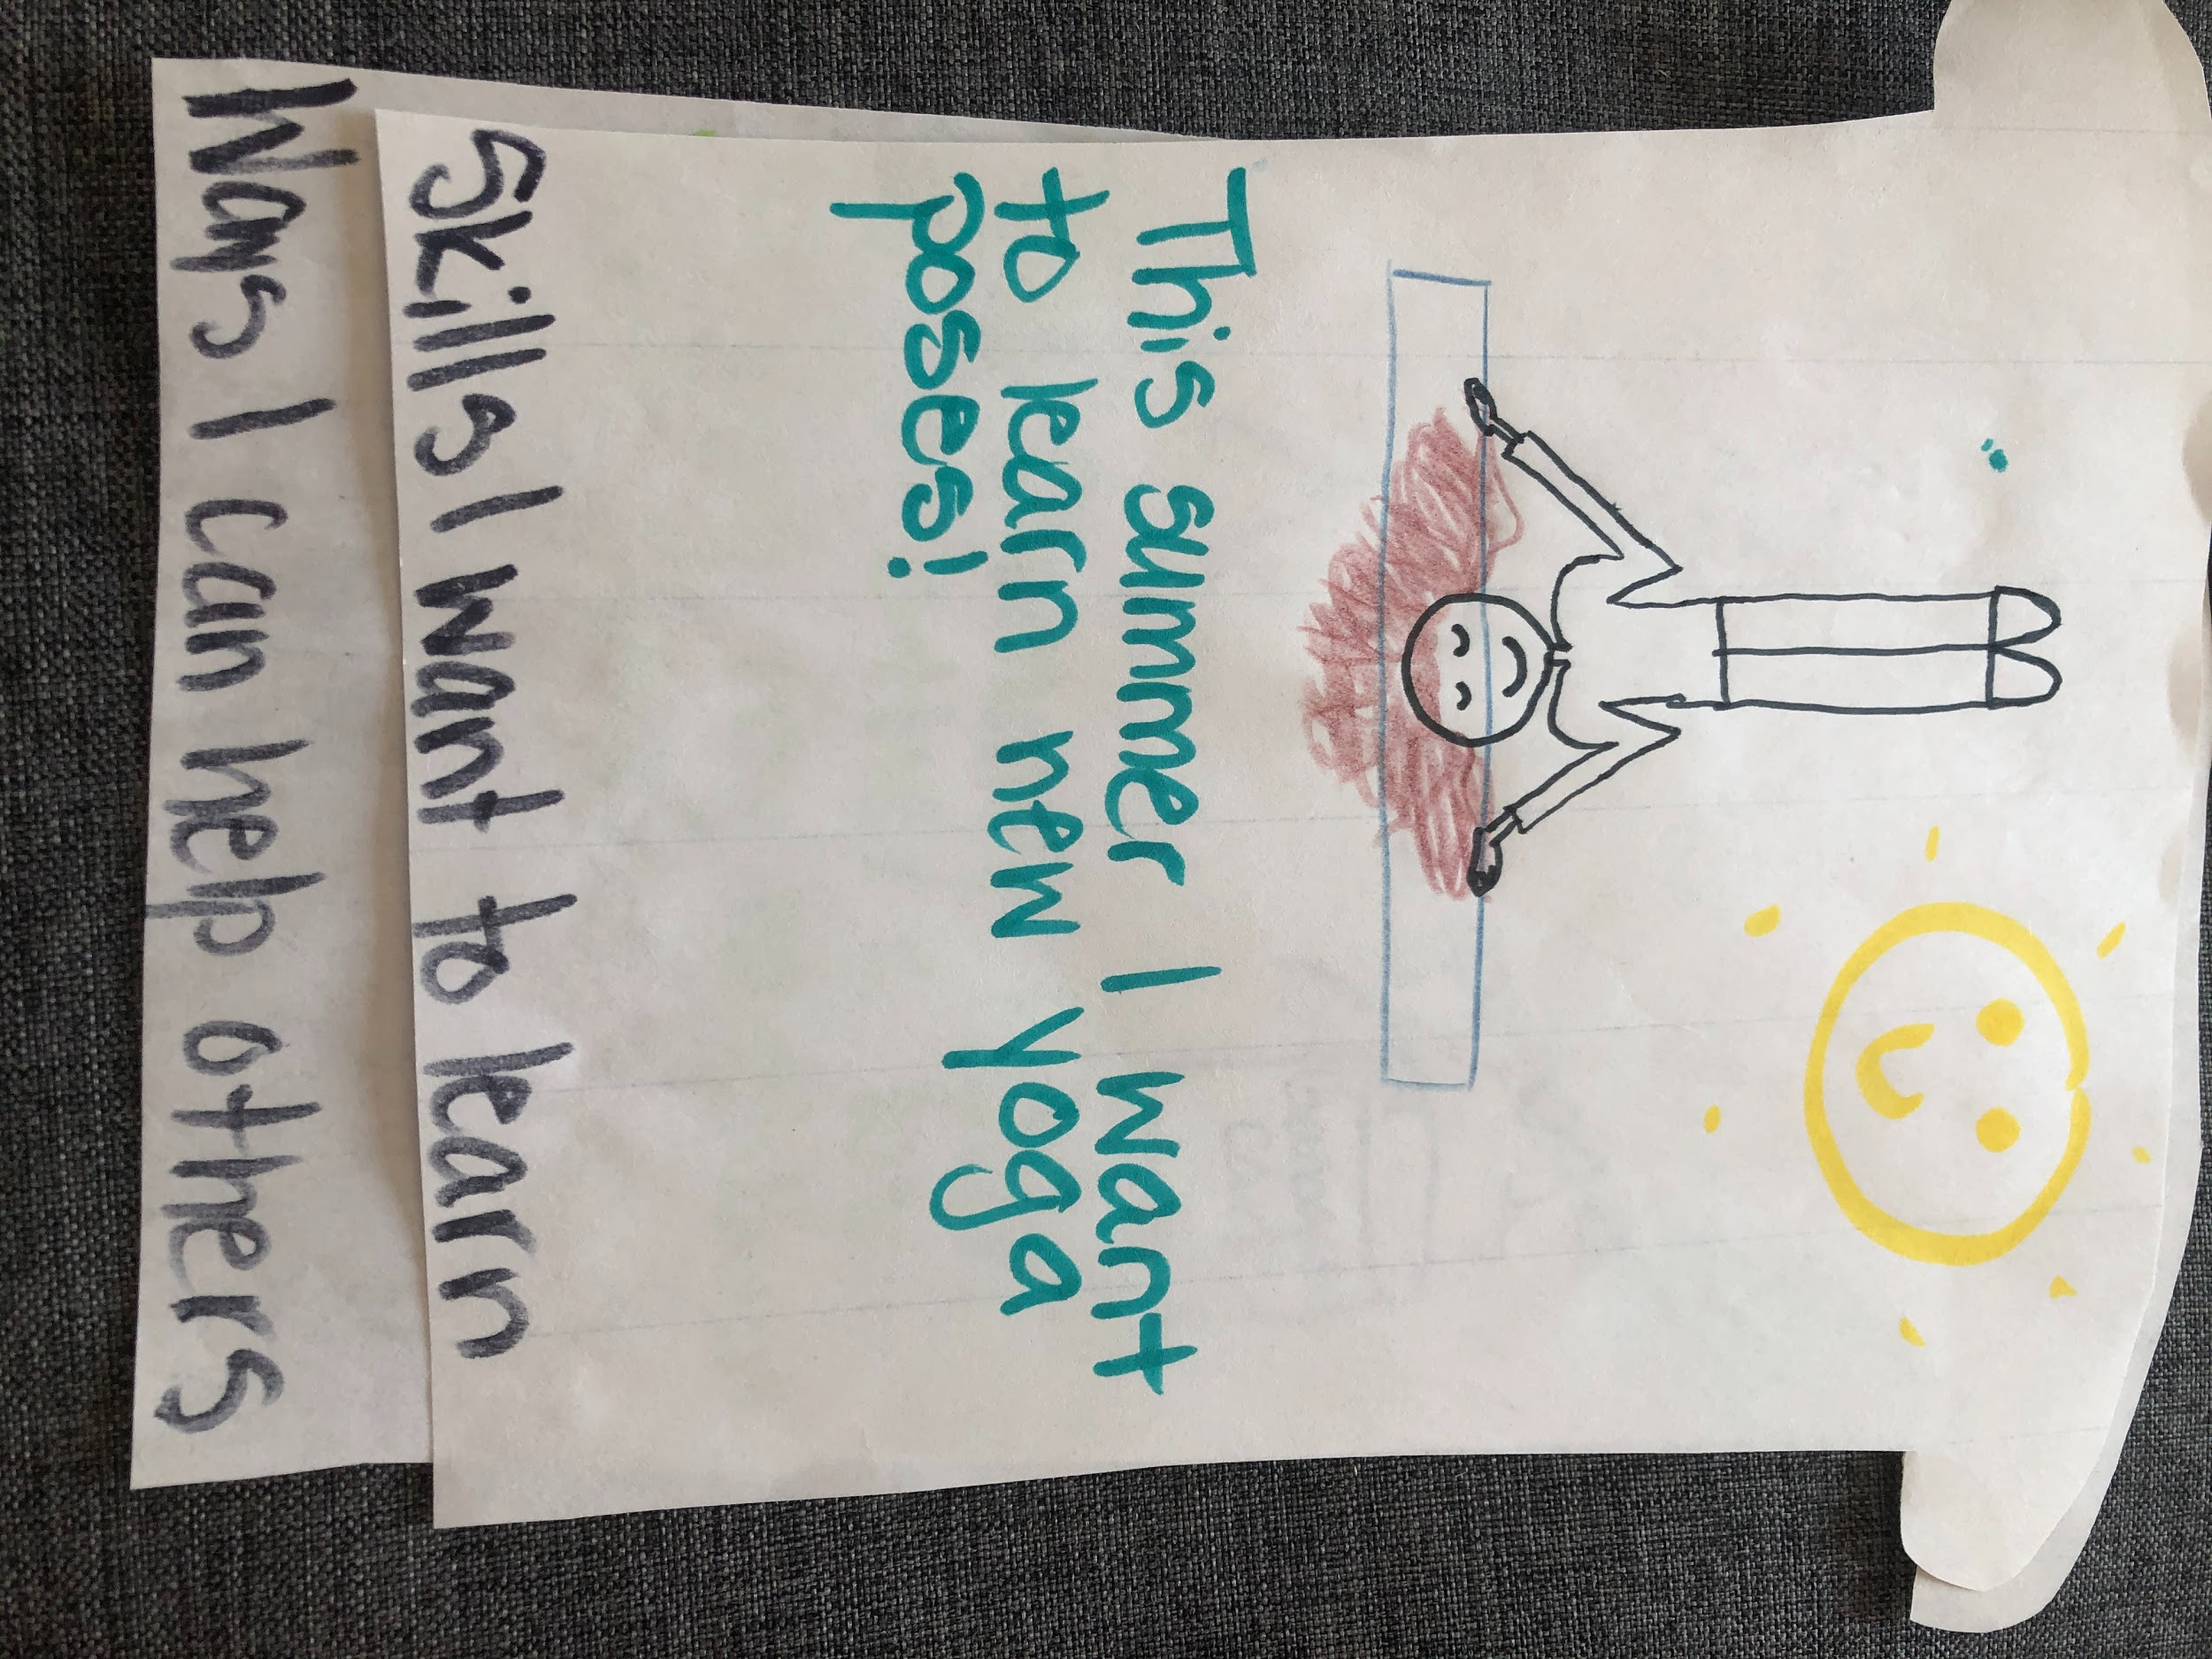 This summer I want
to learn new yoga
poses!
Skills I want to learn
Ways I can help others